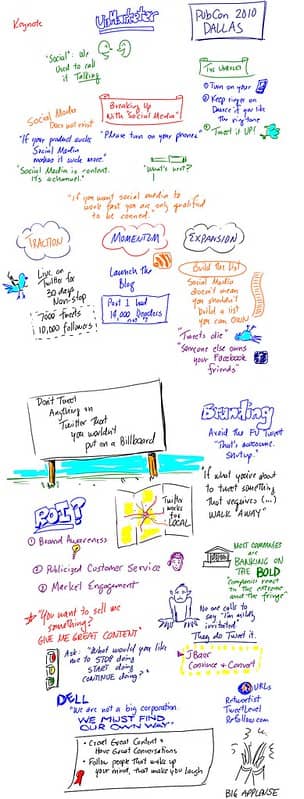 Keynote
UnMarketer
PubCon 2010
DALLAS
"Social": We
used to call
it Talking
The UnRules
① Turn on your
② Keep ringer on
Dance if you like
the ringtone
③ Tweet it UP!
Breaking Up
With "Social Media"
Social Media
Does not exist
"If your product sucks
Social Media
makes it suck more."
"Social Media is content.
Its a channel."
"Please turn on your phones"
"What's next?"
"if you want social media to
work fast you are only qualified
to be conned."
TRACTION
MOMENTUM
EXPANSION
Live on
Twitter for
30 days
Non-stop
7000 tweets
10,000 followers
Launch the
Blog
Post 1 had
14,000 Readers
Build the List
Social Media
doesn't mean
you shouldn't
build a list
you can OWN
"Tweets die"
"Someone else owns
your Facebook
friends"
Don't Tweet
Anything on
Twitter That
You wouldn't
put on a Billboard
Branding
Avoid the FU Tweet
"That's awesome.
Shutup."
"If what you're about
to tweet something
that requires (...)
WALK AWAY"
Twitter
works
for
LOCAL
ROI?
① Brand Awareness
② Publicized Customer Service
③ Market Engagement
MOST COMPANIES
are
BANKING ON
THE BOLD
"companies react
to the extreme
and the fringe"
"You want to sell me
something?
GIVE ME GREAT CONTENT"
No one calls to
say "I'm mildly
irritated"
They do Tweet it.
Ask: "What would you like
me to STOP doing
START doing
CONTINUE doing?"
JBaer
Convince & Convert
DELL
"We are not a big corporation.
WE MUST FIND
OUR OWN WAY"
URLs
Retweetist
TweetLevel
Refollow.com
• Creat Great Content &
Have Great Conversations
• Follow people that wake up
your mind, that make you laugh
BIG APPLAUSE